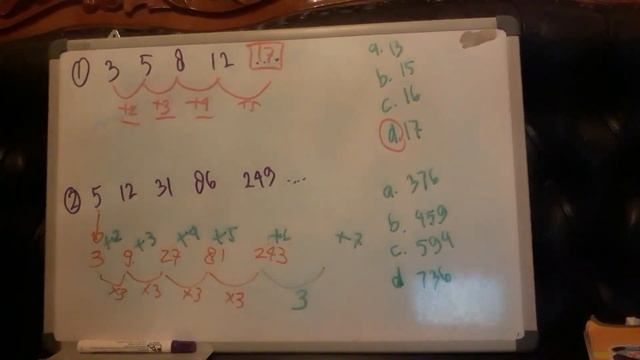 ① 3 5 8 12 17
+2 +3 +4 +5
a. 13
b. 15
c. 16
d. 17
② 5 12 31 86 249 ....
+2 +3 +4 +5 +6 +7
3 9 27 81 243
x3 x3 x3 x3 3
a. 376
b. 459
c. 594
d 736